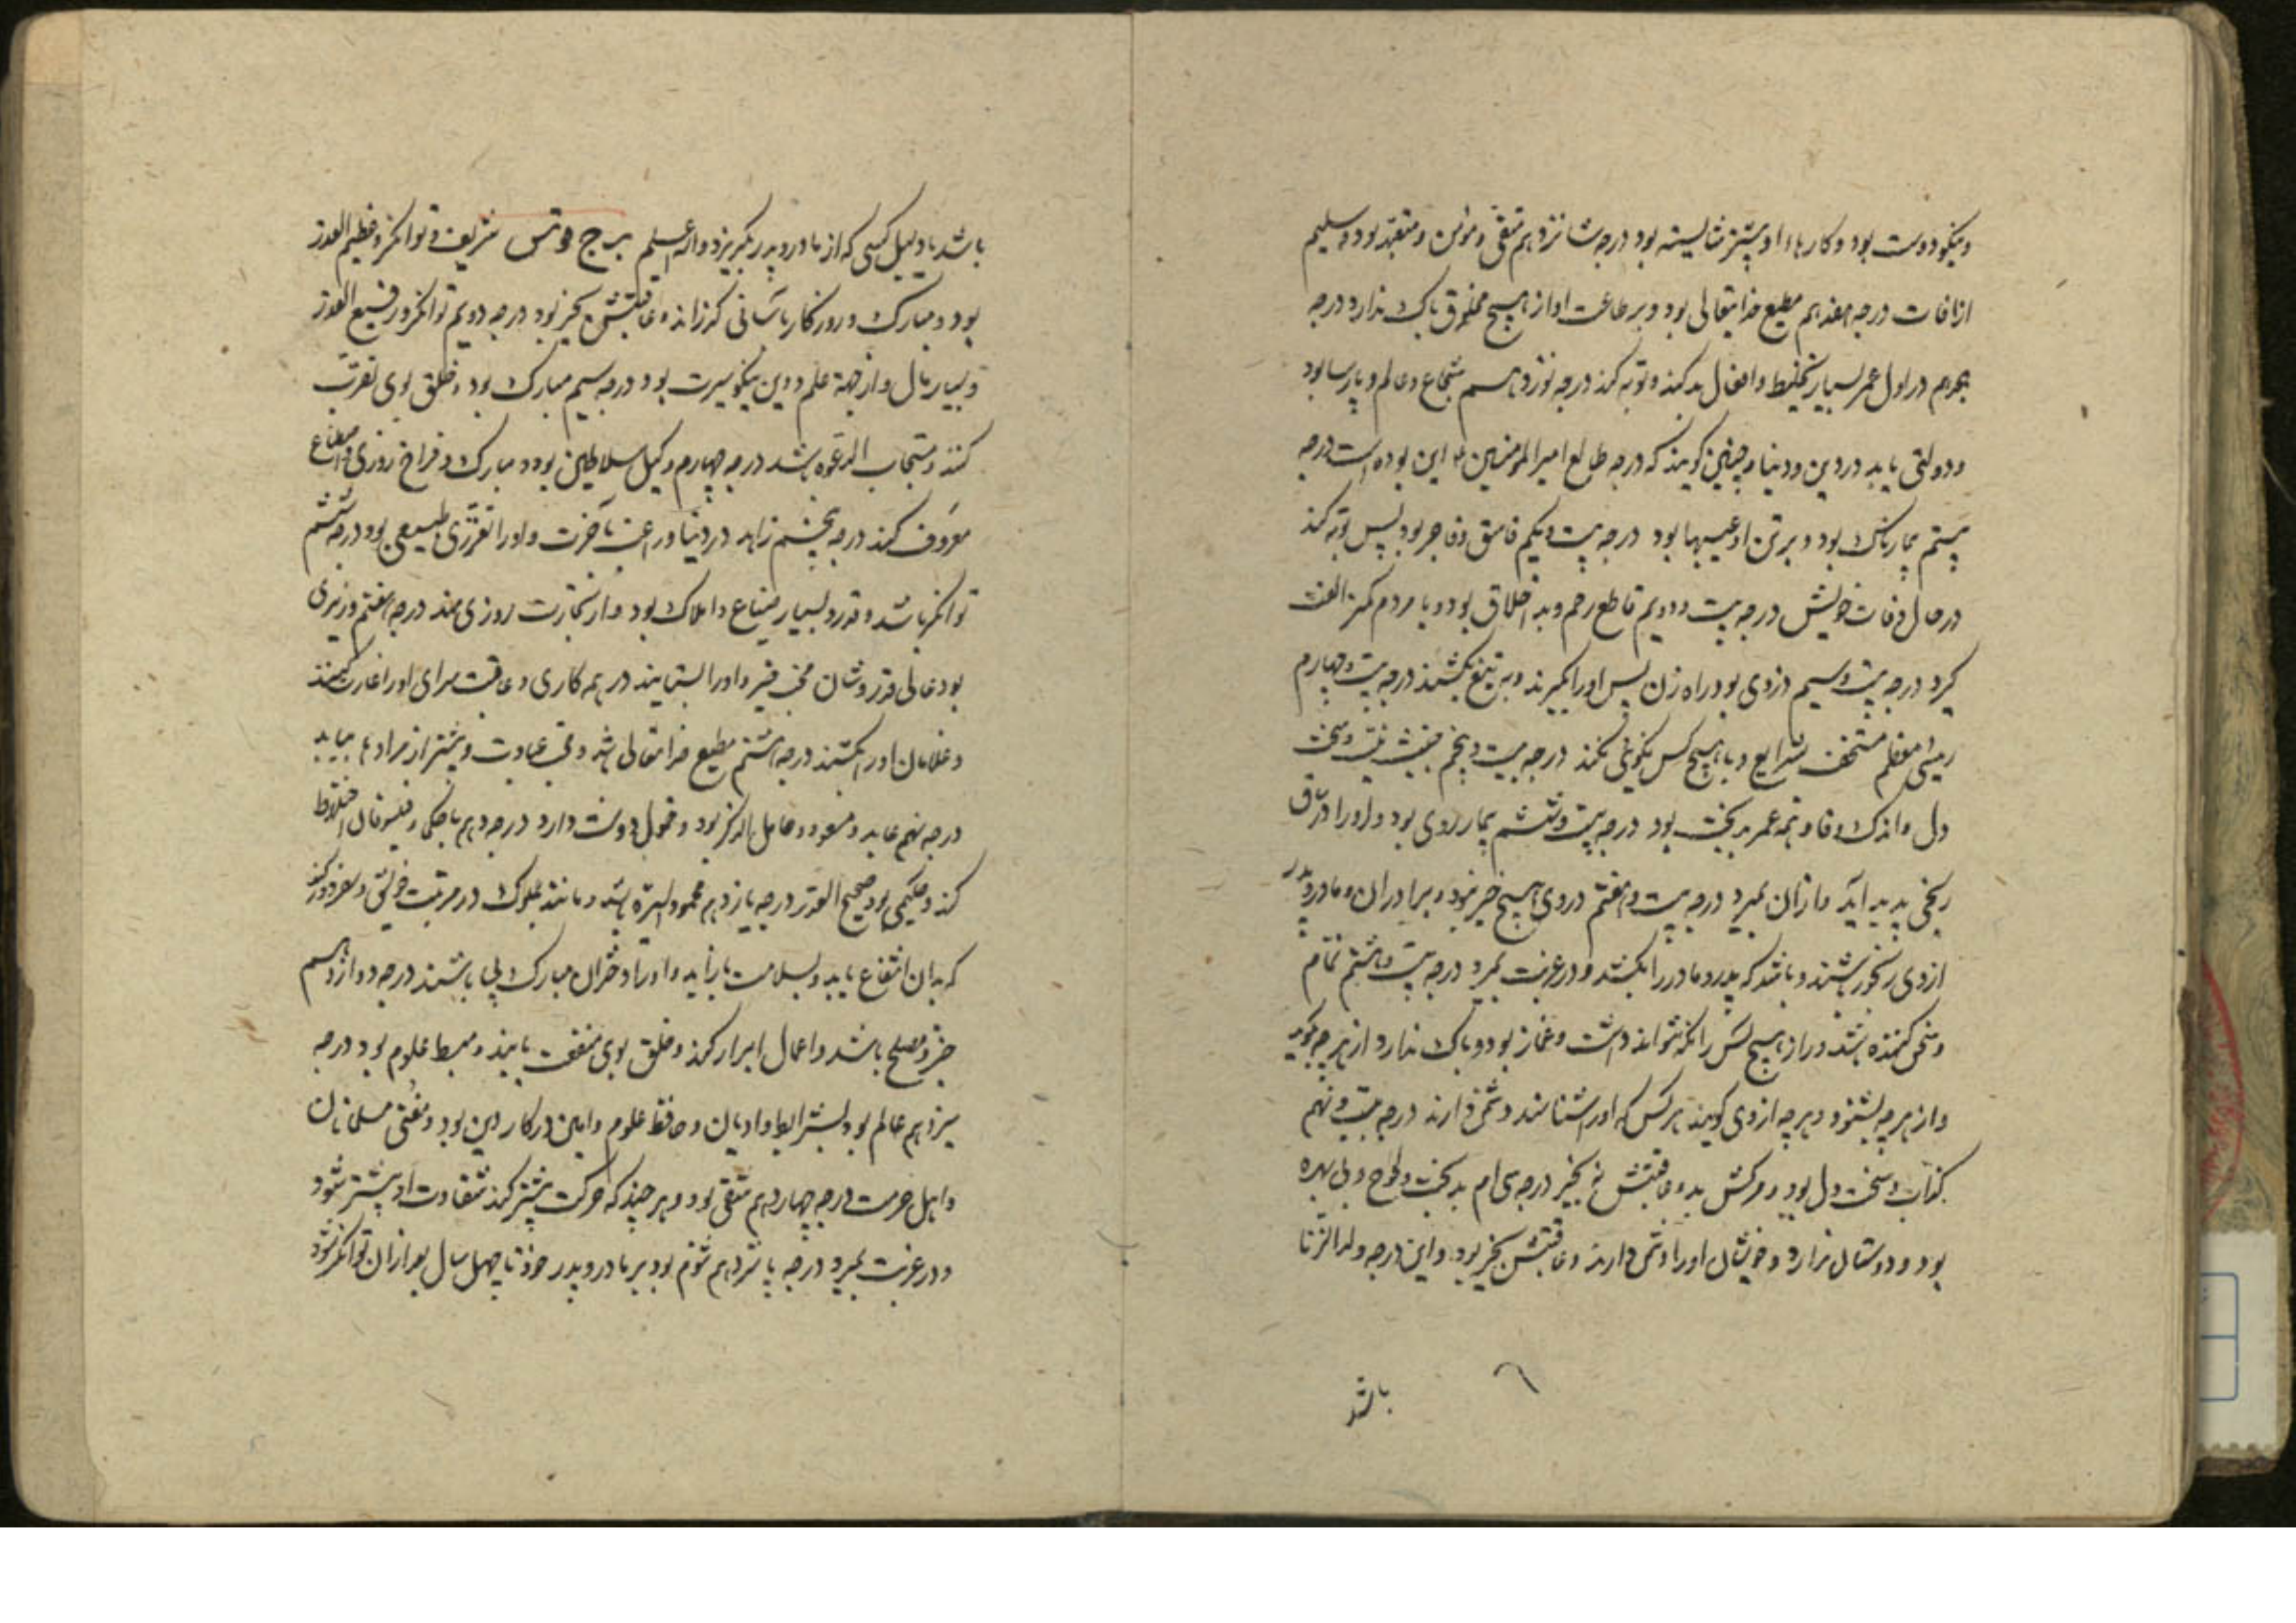 و نیکو دوست بود و کارهاء او بیشتر شایسته بود درجه شانزدهم متقی و مؤمن و متعبد بود و سلیم
از آفات درجه هفدهم مطیع خدایتعالی بود و بر طاعت او از هیچ مخلوق باک ندارد درجه
هجدهم در اول عمر بسیار تخلیط و افعال بد کند و توبه کند درجه نوزدهم شجاع و عالم و پارسا بود
و دولتی یابد در دین و دنیا و چنین گویند که درجه طالع امیرالمومنین این بوده است درجه
بیستم بیمارناک بود و بر تن او عیبها بود درجه بیست و یکم فاسق و فاجر بود پس توبه کند
در حال وفات خویش درجه بیست و دویم قاطع رحم و بد اخلاق بود و با مردم کمتر الفت
گیرد درجه بیست و سیم دزدی بود راه زن پس او را بگیرند و به تیغ بکشند درجه بیست و چهارم
رئیسی معظم مستخف بشرایع و با هیچ کس نیکوئی نکند درجه بیست و پنجم سخت
دل و اندک وفا و همه عمر بدبخت بود درجه بیست و ششم بیمار روی بود و او را در
رنجی پدید آید و از آن بمیرد درجه بیست و هفتم در وی هیچ خیر نبود و برادران و مادر و پدر
از وی رنجور باشند و باشد که پدر و مادر را بکشد و در غربت بمیرد درجه بیست و هشتم نمام
و سخن کننده باشد و راز هیچ کس را نگه نتواند داشت و غماز بود و باک ندارد از هر چه گوید
و از هر چه بشنود و هر چه از وی گویند هر کس که او را شناسند دشمن دارند درجه بیست و نهم
کذاب و سخت دل بود و مرگش بد و عاقبتش نه بخیر درجه سی ام بدبخت و لجوج و بی بهره
بود و دوستان ندارد و خویشان او را دشمن دارند و عاقبتش بخیر بود و این درجه ولد الزنا
باشد
باشد یا دلیل کسی که از مادر و پدر بگریزد والله اعلم برج حوت شریف و توانگر و عظیم القدر
بود و مبارک و روزگار بآسانی گذراند و عاقبتش بخیر بود درجه دویم توانگر و رفیع القدر
و بسیار مال و از جهة علم و دین نیکو سیرت بود درجه سیم مبارک بود و خلق بوی تقرب
کنند و مستجاب الدعوه باشد درجه چهارم وکیل سلاطین بود و مبارک و فراخ روزی و اصطناع
معروف کند درجه پنجم زاهد در دنیا و راغب بآخرت و او را طبیعی بود درجه ششم
توانگر باشد و قدر و بسیار ضیاع و املاک بود و از تجارت روزی مند درجه هفتم وزیری
بود عالی قدر و شان و او را بستایند در همه کاری و عاقبت سرای او را غارت کنند
و غلامان او را بکشند درجه هشتم مطیع خدایتعالی باشد و محب عبادت و بیشتر از مرادها بیابد
درجه نهم عابد و مسعود و خامل الذکر بود و خمول دوست دارد درجه دهم با حکما و فیلسوفان اختلاط
کند و حکیمی بود صحیح القدر درجه یازدهم محمود السیره باشد و مانند ملوک در مرتبت خویش و سفر دور کند
که بدان انتفاع یابد و بسلامت بازآید و او را دختران مبارک پی باشند درجه دوازدهم
خیر و مصلح باشد و اعمال ابرار کند و خلق بوی منفعت یابند و مبسط علوم بود درجه
سیزدهم عالم بود بشرایط و ادیان و حافظ علوم و امین در کار دین بود و مفتی مسلمانان
و اهل حرمت درجه چهاردهم شقی بود و هر چند که حرکت بیشتر کند شقاوت او بیشتر شود
و در غربت بمیرد درجه پانزدهم شوم بود بر مادر و پدر خود تا چهل سال بعد از آن توانگر شود